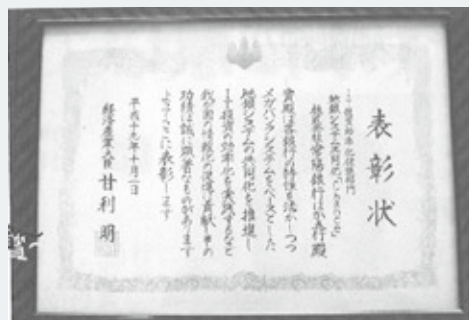 表彰状
IT投資効率化促進部門
地銀システム共同化「じゅうだん会」
株式会社常陽銀行ほか六行殿
貴殿は各銀行の特性を活かしつつ
メガバンクシステムをベースとした
地銀システムの共同化を推進し
IT投資の効率化を実現するなど
我が国の情報化の促進に貢献し その
功績は誠に顕著なものがあります
よってここに表彰します
平成十九年十月一日
経済産業大臣 甘利 明